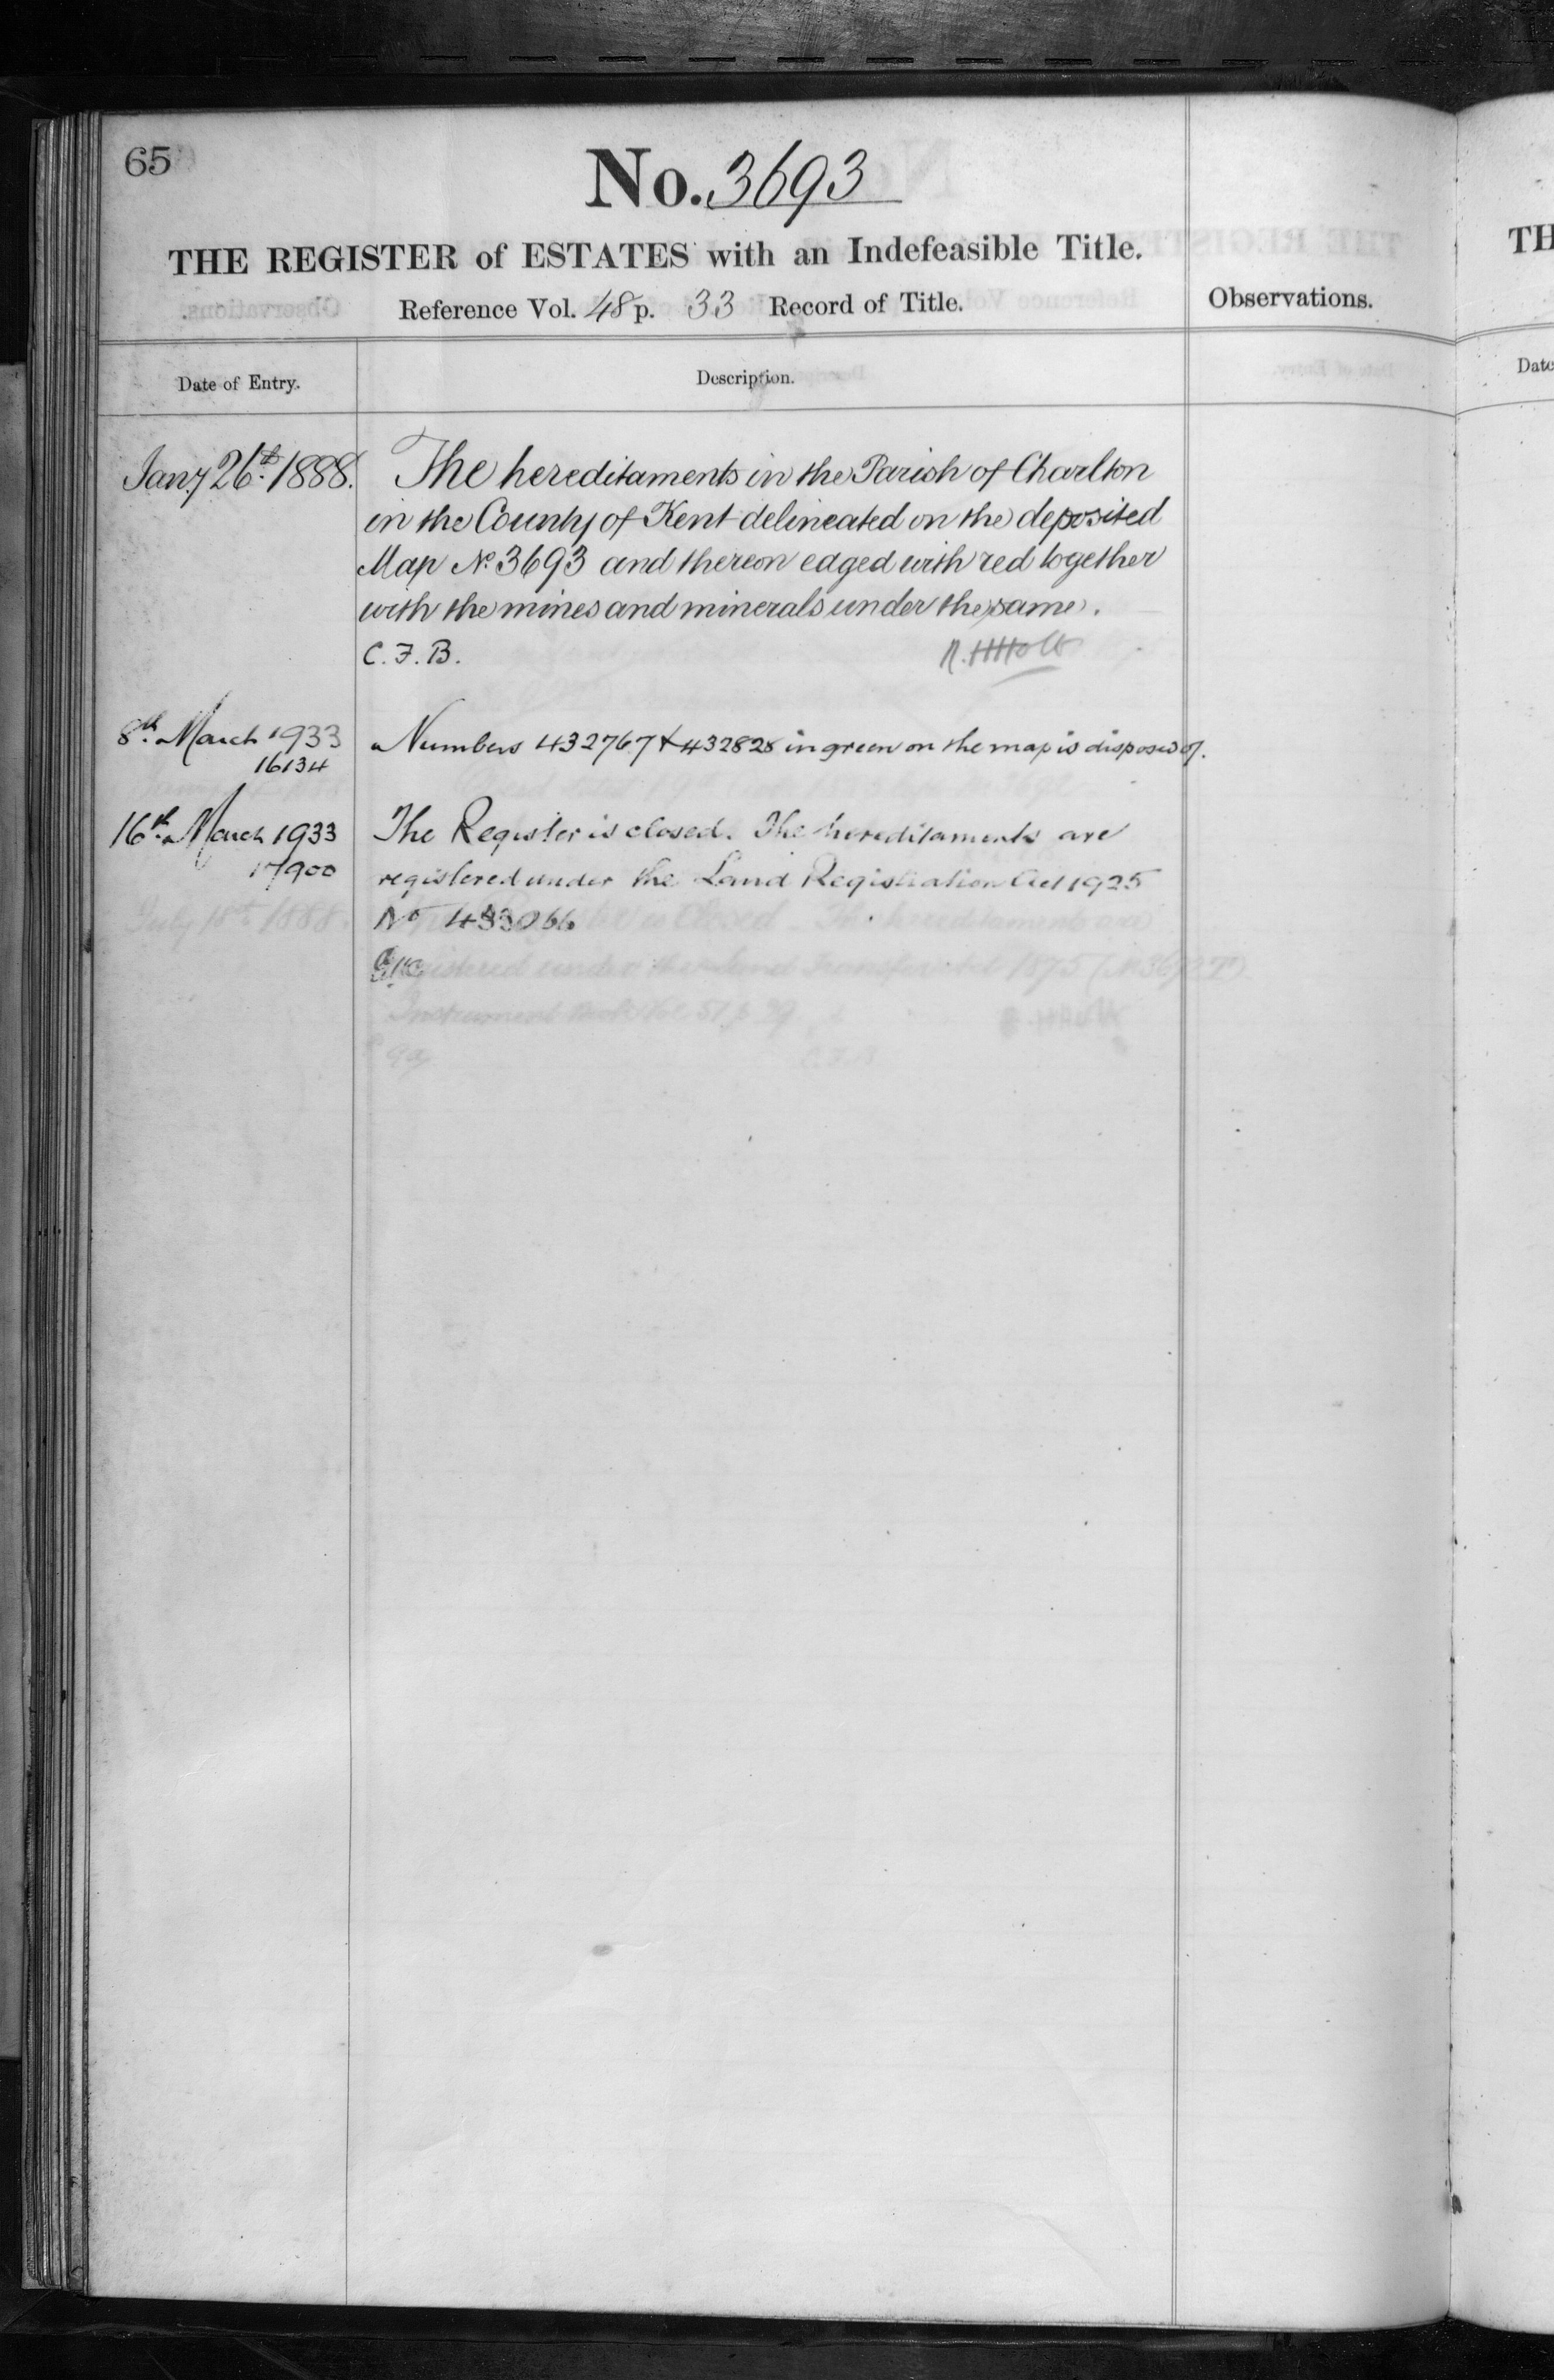 65
No. 3693
THE REGISTER of ESTATES with an Indefeasible Title.
Reference Vol. 48 p. 33 Record of Title.
Observations.
Date of Entry.
Description.
Jany 26th 1888.
The hereditaments in the Parish of Charlton
in the County of Kent delineated on the deposited
Map No 3693 and thereon edged with red together
with the mines and minerals under the same.
C.F.B.
R.H.Holt
8th March 1933
16134
Numbers 432767 & 432828 in green on the map is disposed of.
16th March 1933
17900
The Register is closed. The hereditaments are
registered under the Land Registration Act 1925
No 433066
TH
Date